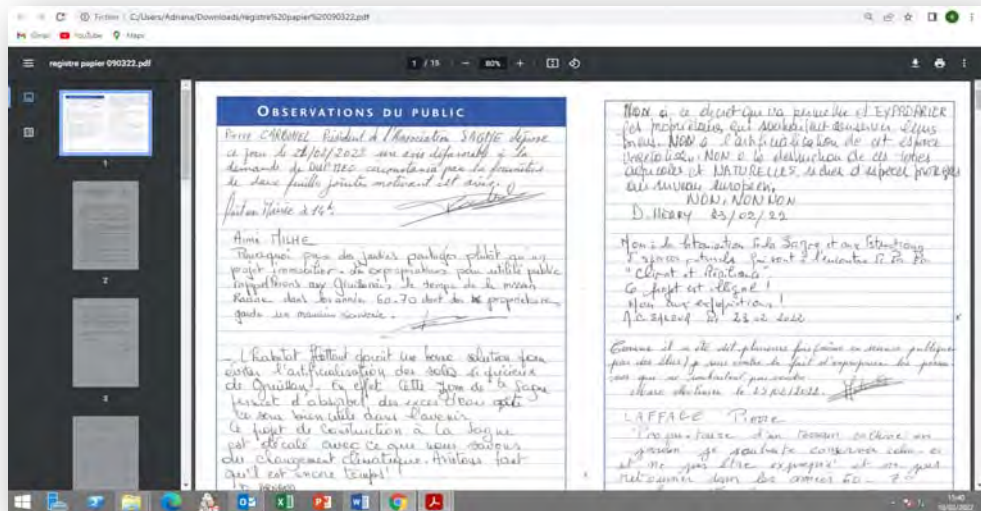 Fichier | C:/Users/Adriana/Downloads/registre%20papier%20090322.pdf
Gmail YouTube Maps
registre papier 090322.pdf
1 / 15
80%
1
2
3
OBSERVATIONS DU PUBLIC
Pierre CARBONEL Président de l'Association SAGNE dépose
ce jour le 21/02/2022 un avis défavorable à la
demande de DUP MEC
de deux feuilles jointes motivant cet avis.
Fait en Mairie à 14h
Aimé MILHE
Pourquoi pas des jardins partagés plutôt qu'un
projet immobilier. Les expropriations pour utilité publique
rappellerons aux Gruissanais le temps de la mission
Racine dans les années 60-70 dont des propriétaires
garde un mauvais souvenir.
- L'habitat flottant serait une bonne solution pour
éviter l'artificialisation des sols si précieux
de Gruissan. En effet cette zone de la Sagne
permet d'absorber des excès d'eau
ce sera bien utile dans l'avenir
Ce projet de construction à la Sagne
est décalé avec ce que nous savons
du changement climatique. Arrêtons tant
qu'il est encore temps!
NON à ce décret qui va permettre d'EXPROPRIER
les propriétaires qui souhaitent conserver leurs
biens. NON à l'artificialisation de cet espace
NON à la destruction de ces terres
agricoles et NATURELLES, d'espèces protégées
au niveau européen.
NON, NON NON
D. MERRY 23/02/22
Non à la bétonisation de la Sagne et aux destructions
d'espaces naturels qui vont à l'encontre de la loi
"Climat et Résilience".
Ce projet est illégal!
Non aux expropriations!
23 02 2022
Comme il a été dit plusieurs fois même en séance publique
par des élus, je suis contre le fait d'exproprier les personnes
qui ne souhaitent pas vendre.
le 23/02/2022.
LAFFAGE Pierre
Propriétaire d'un terrain
je souhaite conserver celui-ci
et ne pas être exproprié et ne pas
retourner dans les années 60-70
15:40
10/03/2022